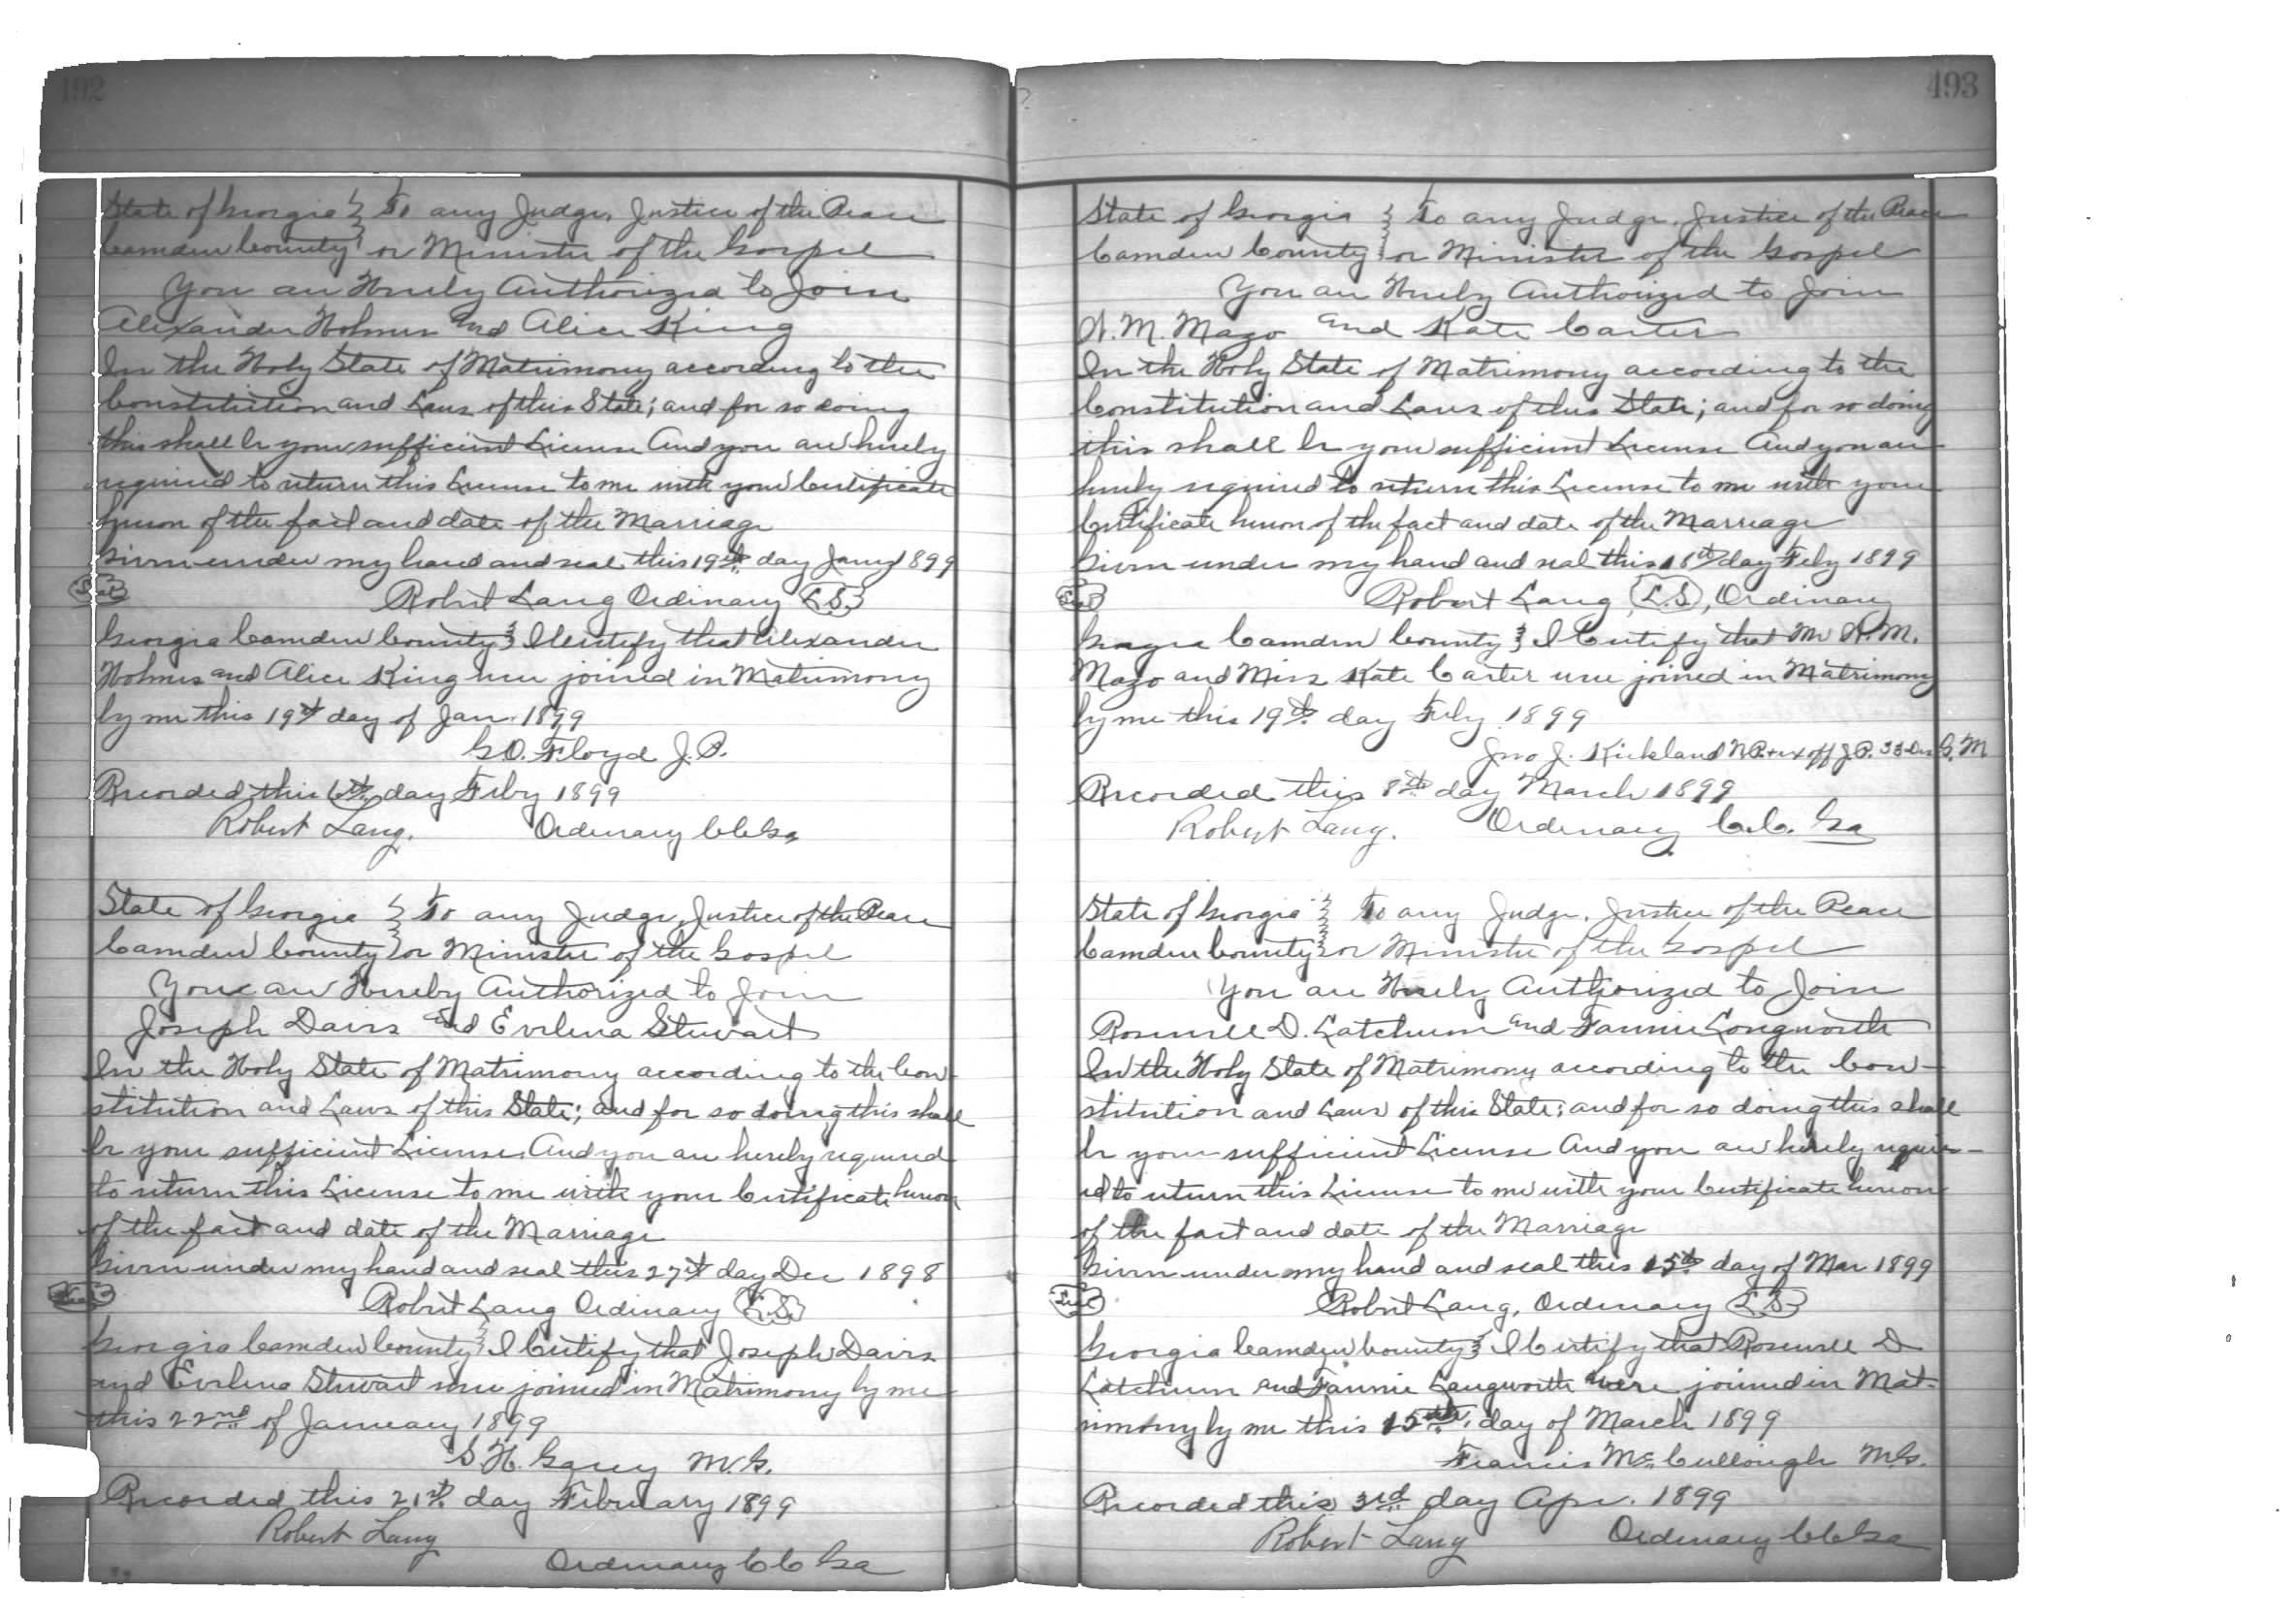 492
State of Georgia } To any Judge, Justice of the Peace
Camden County } or Minister of the Gospel
You are Hereby Authorized to Join
Alexander Holmes and Alice King
In the Holy State of Matrimony according to the
Constitution and Laws of this State; and for so doing
this shall be your sufficient License And you are hereby
required to return this License to me with your Certificate
hereon of the fact and date of the Marriage
Given under my hand and seal this 19th day Jany 1899
Seal Robert Lang Ordinary L.S.
Georgia Camden County } I Certify that Alexander
Holmes and Alice King were joined in Matrimony
by me this 19th day of Jan. 1899
G. O. Floyd J.P.
Recorded this 6th day Feby 1899
Robert Lang. Ordinary C C Ga
State of Georgia } To any Judge, Justice of the Peace
Camden County } or Minister of the Gospel
You are Hereby Authorized to Join
Joseph Davis and Evelina Stewart
In the Holy State of Matrimony according to the Con-
stitution and Laws of this State; and for so doing this shall
be your sufficient License And you are hereby required
to return this License to me with your Certificate hereon
of the fact and date of the Marriage
Given under my hand and seal this 27th day Dec 1898
Seal Robert Lang Ordinary L.S.
Georgia Camden County } I Certify that Joseph Davis
and Evelina Stewart were joined in Matrimony by me
this 22nd of January 1899
S. H. M.G.
Recorded this 21st day February 1899
Robert Lang
Ordinary C C Ga
493
State of Georgia } To any Judge, Justice of the Peace
Camden County } or Minister of the Gospel
You are Hereby Authorized to Join
N. M. Mazo and Kate Carter
In the Holy State of Matrimony according to the
Constitution and Laws of this State; and for so doing
this shall be your sufficient License And you are
hereby required to return this License to me with your
Certificate hereon of the fact and date of the Marriage
Given under my hand and seal this 18th day Feby 1899
Seal Robert Lang, L.S., Ordinary
Georgia Camden County } I Certify that Mr N. M.
Mazo and Miss Kate Carter were joined in Matrimony
by me this 19th day Feby 1899
Jno J. Kirkland N.P. & ex off J.P. 33 Dis G.M
Recorded this 8th day March 1899
Robert Lang. Ordinary C.C. Ga
State of Georgia } To any Judge, Justice of the Peace
Camden County } or Minister of the Gospel
You are Hereby Authorized to Join
Rosewell D. Latchum and Fannie Longworth
In the Holy State of Matrimony according to the Con-
stitution and Laws of this State; and for so doing this shall
be your sufficient License And you are hereby requir-
ed to return this License to me with your Certificate hereon
of the fact and date of the Marriage
Given under my hand and seal this 15th day of Mar 1899
Seal Robert Lang, Ordinary L.S.
Georgia Camden County } I Certify that Rosewell D
Latchum and Fannie Langworth were joined in Mat-
rimony by me this 15th. day of March 1899
Francis McCullough M.G.
Recorded this 3rd day Apr. 1899
Robert Lang Ordinary C C Ga